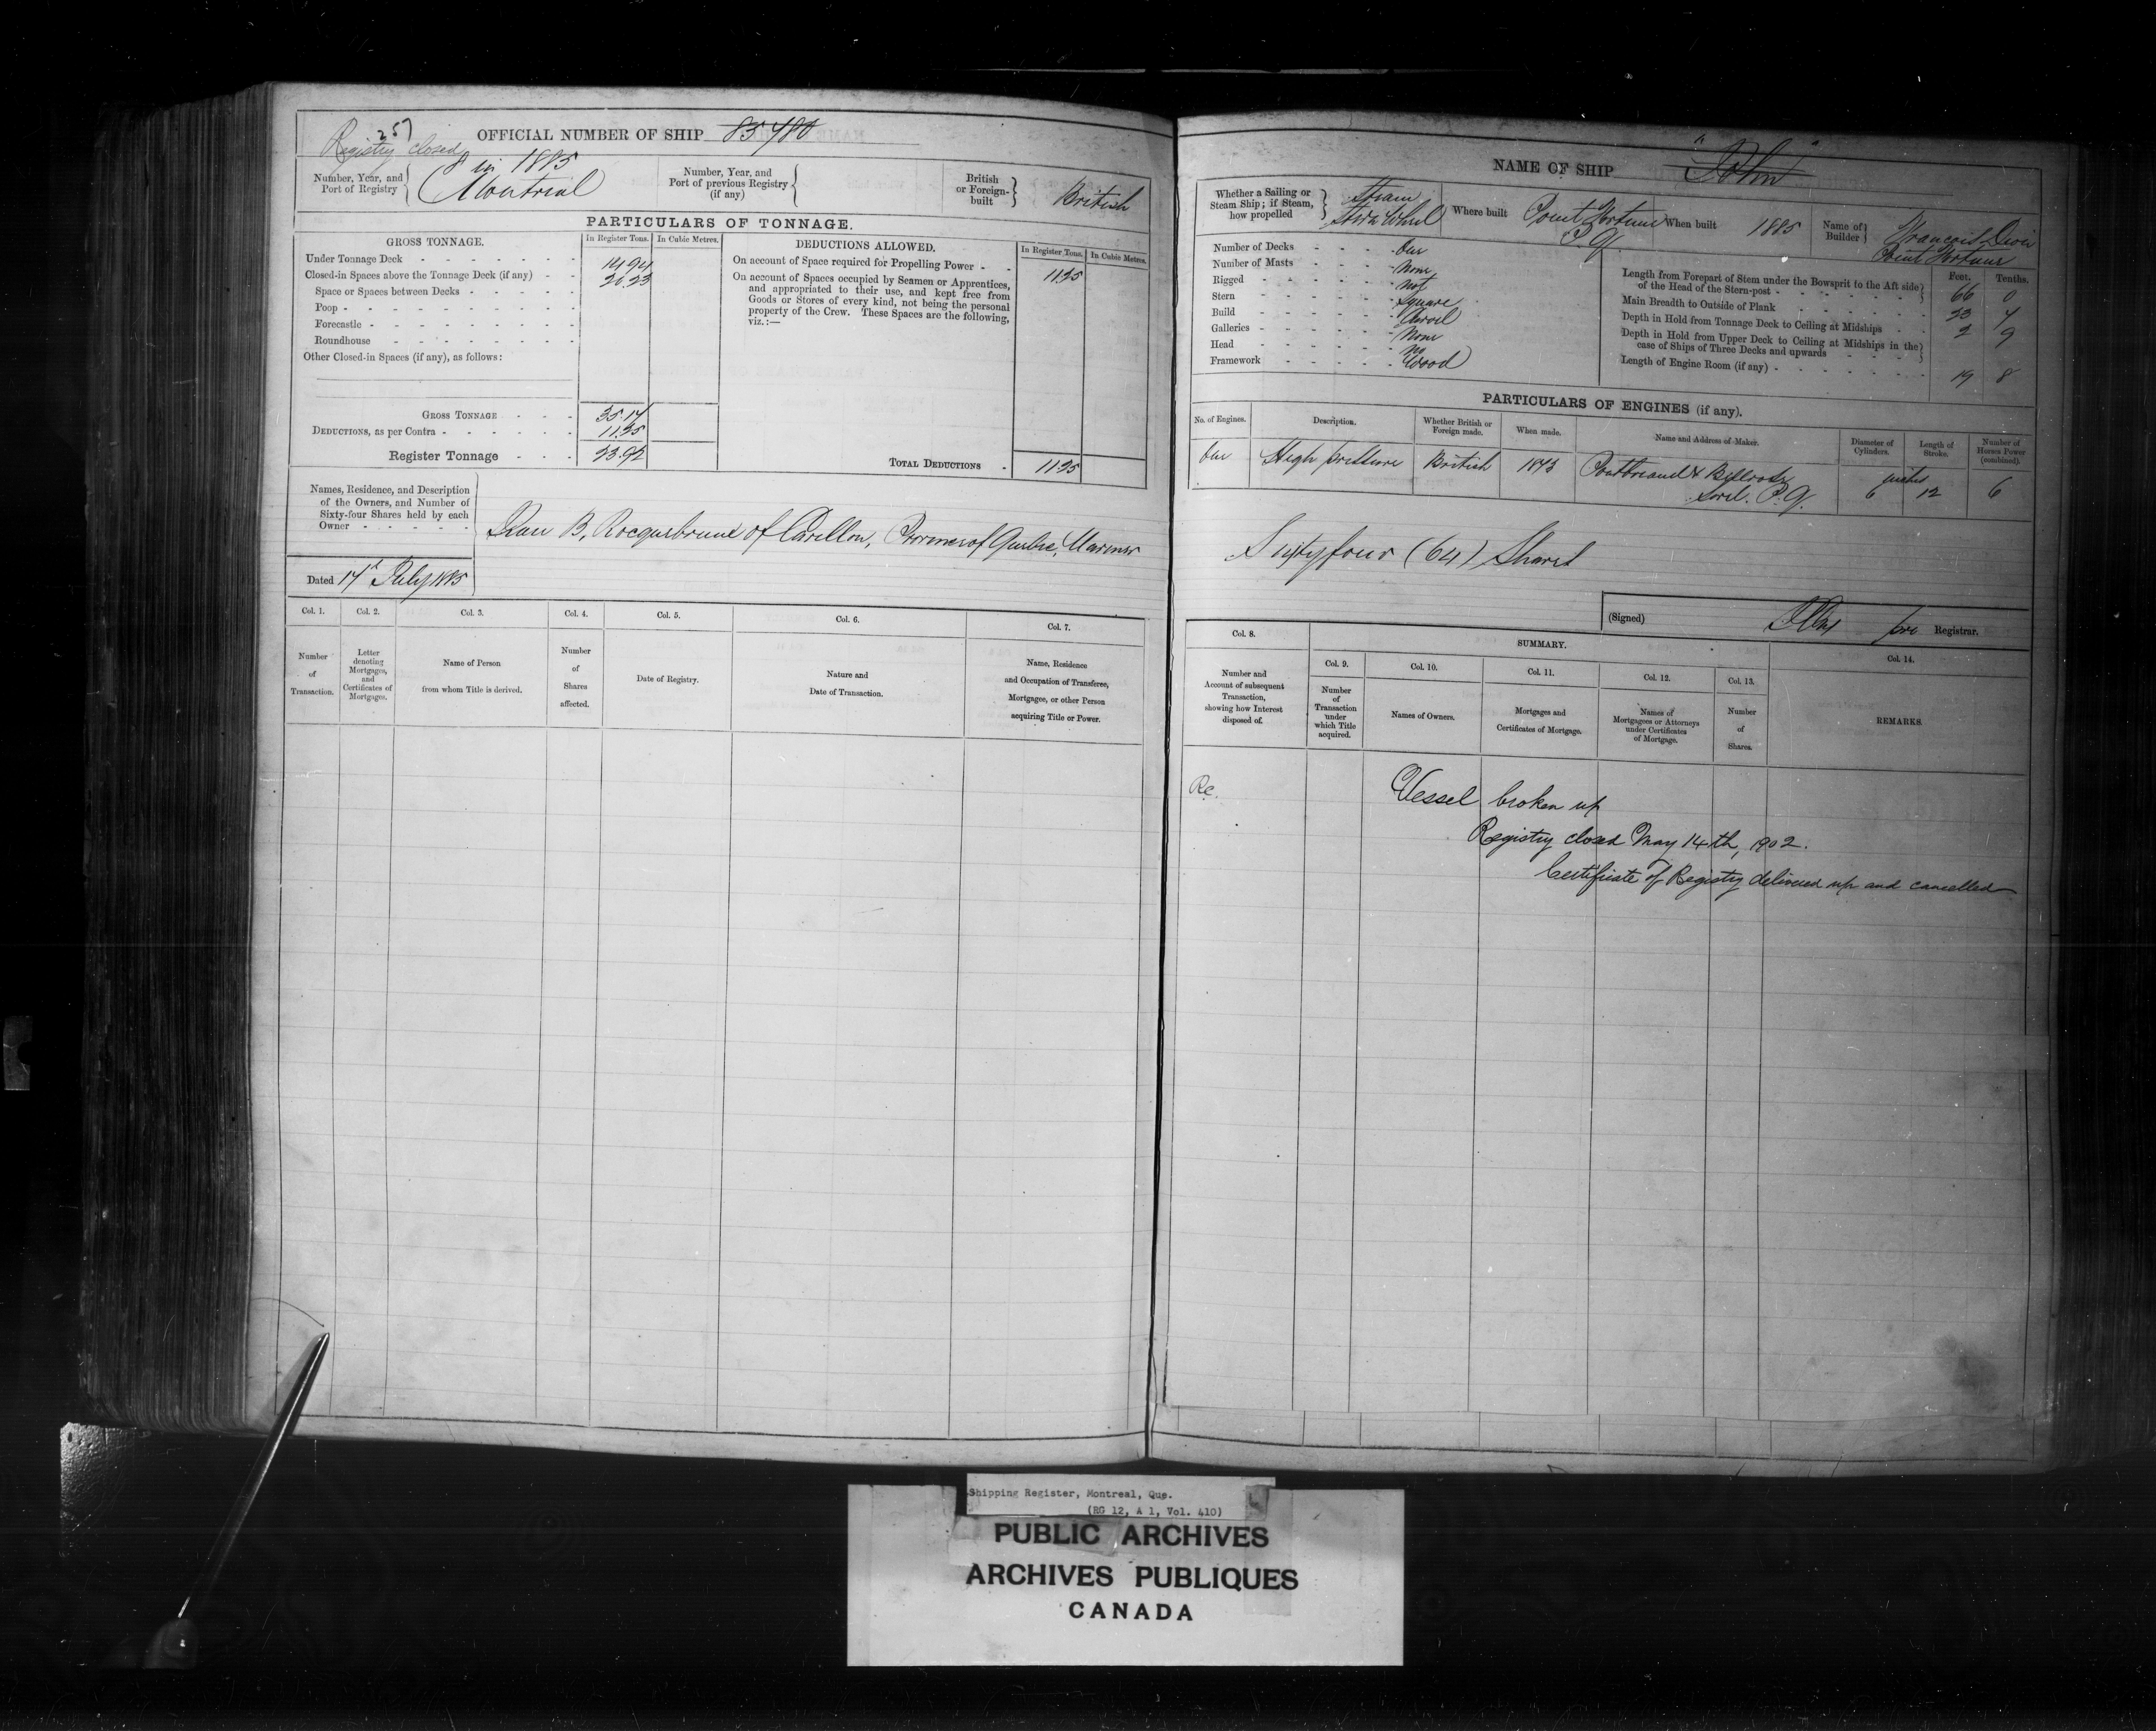 257
Registry closed
OFFICIAL NUMBER OF SHIP 85480
Number, Year, and
Port of Registry
8 in 1885
Montreal
Number, Year, and
Port of previous Registry
(if any)
British
or Foreign-
built
British
PARTICULARS OF TONNAGE.
GROSS TONNAGE.
In Register Tons.
In Cubic Metres.
DEDUCTIONS ALLOWED.
In Register Tons.
In Cubic Metres.
Under Tonnage Deck
14.94
Closed-in Spaces above the Tonnage Deck (if any)
20.23
Space or Spaces between Decks
Poop
Forecastle
Roundhouse
Other Closed-in Spaces (if any), as follows:
On account of Space required for Propelling Power
11.25
On account of Spaces occupied by Seamen or Apprentices,
and appropriated to their use, and kept free from
Goods or Stores of every kind, not being the personal
property of the Crew. These Spaces are the following,
viz.:—
GROSS TONNAGE
35.17
DEDUCTIONS, as per Contra
11.25
Register Tonnage
23.92
TOTAL DEDUCTIONS
11.25
Names, Residence, and Description
of the Owners, and Number of
Sixty-four Shares held by each
Owner
Jean B. Rocquebrune of Carillon, Province of Quebec, Mariner
Dated 14th July 1885
Col. 1.
Col. 2.
Col. 3.
Col. 4.
Col. 5.
Col. 6.
Col. 7.
Number
of
Transaction.
Letter
denoting
Mortgages,
and
Certificates of
Mortgages.
Name of Person
from whom Title is derived.
Number
of
Shares
affected.
Date of Registry.
Nature and
Date of Transaction.
Name, Residence
and Occupation of Transferee,
Mortgagee, or other Person
acquiring Title or Power.
NAME OF SHIP "John"
Whether a Sailing or
Steam Ship; if Steam,
how propelled
Steam
Stern Wheel
Where built
Point Fortune
P.Q.
When built
1885
Name of
Builder
Francois
Point Fortune
Number of Decks
One
Number of Masts
None
Rigged
Not
Stern
Square
Build
Carvel
Galleries
None
Head
No
Framework
Wood
Feet.
Tenths.
Length from Forepart of Stem under the Bowsprit to the Aft side
of the Head of the Stern-post
66 0
Main Breadth to Outside of Plank
23 4
Depth in Hold from Tonnage Deck to Ceiling at Midships
2 9
Depth in Hold from Upper Deck to Ceiling at Midships in the
case of Ships of Three Decks and upwards
Length of Engine Room (if any)
19 8
PARTICULARS OF ENGINES (if any).
No. of Engines.
Description.
Whether British or
Foreign made.
When made.
Name and Address of Maker.
Diameter of
Cylinders.
Length of
Stroke.
Number of
Horses Power
(combined).
One
High pressure
British
1873
Sorel. P.Q.
inches
6
12
6
Sixty four (64) Shares
(Signed)
Registrar.
Col. 8.
SUMMARY.
Col. 14.
Col. 9.
Col. 10.
Col. 11.
Col. 12.
Col. 13.
Number and
Account of subsequent
Transaction,
showing how Interest
disposed of.
Number
of
Transaction
under
which Title
acquired.
Names of Owners.
Mortgages and
Certificates of Mortgage.
Names of
Mortgagees or Attorneys
under Certificates
of Mortgage.
Number
of
Shares.
REMARKS.
Vessel broken up
Registry closed May 14th, 1902.
Certificate of Registry delivered up and cancelled
Shipping Register, Montreal, Que.
(RG 12, A 1, Vol. 410)
PUBLIC ARCHIVES
ARCHIVES PUBLIQUES
CANADA